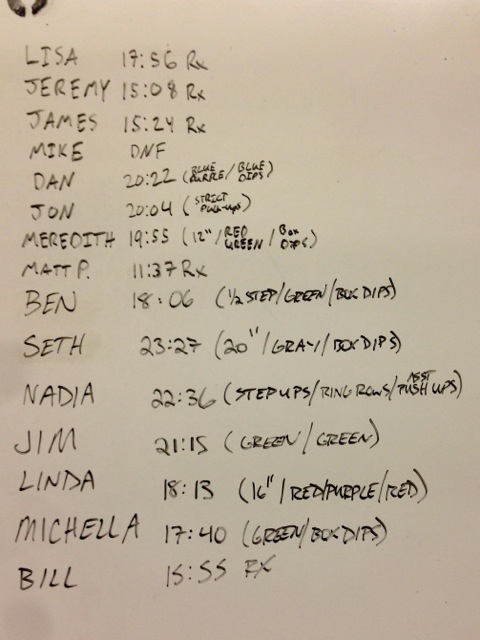 LISA 17:56 Rx
JEREMY 15:08 Rx
JAMES 15:24 Rx
MIKE DNF
DAN 20:22 (BLUE PURPLE/BLUE DIPS)
JON 20:04 (STRICT PULL-UPS)
MEREDITH 19:55 (12"/RED GREEN/BOX DIPS)
MATT P. 11:37 Rx
BEN 18:06 (1/2 STEP/GREEN/BOX DIPS)
SETH 23:27 (20"/GRAY/BOX DIPS)
NADIA 22:36 (STEP UPS/RING ROWS/ASST PUSH UPS)
JIM 21:15 (GREEN/GREEN)
LINDA 18:13 (16"/RED/PURPLE/RED)
MICHELLA 17:40 (GREEN/BOX DIPS)
BILL 15:55 RX